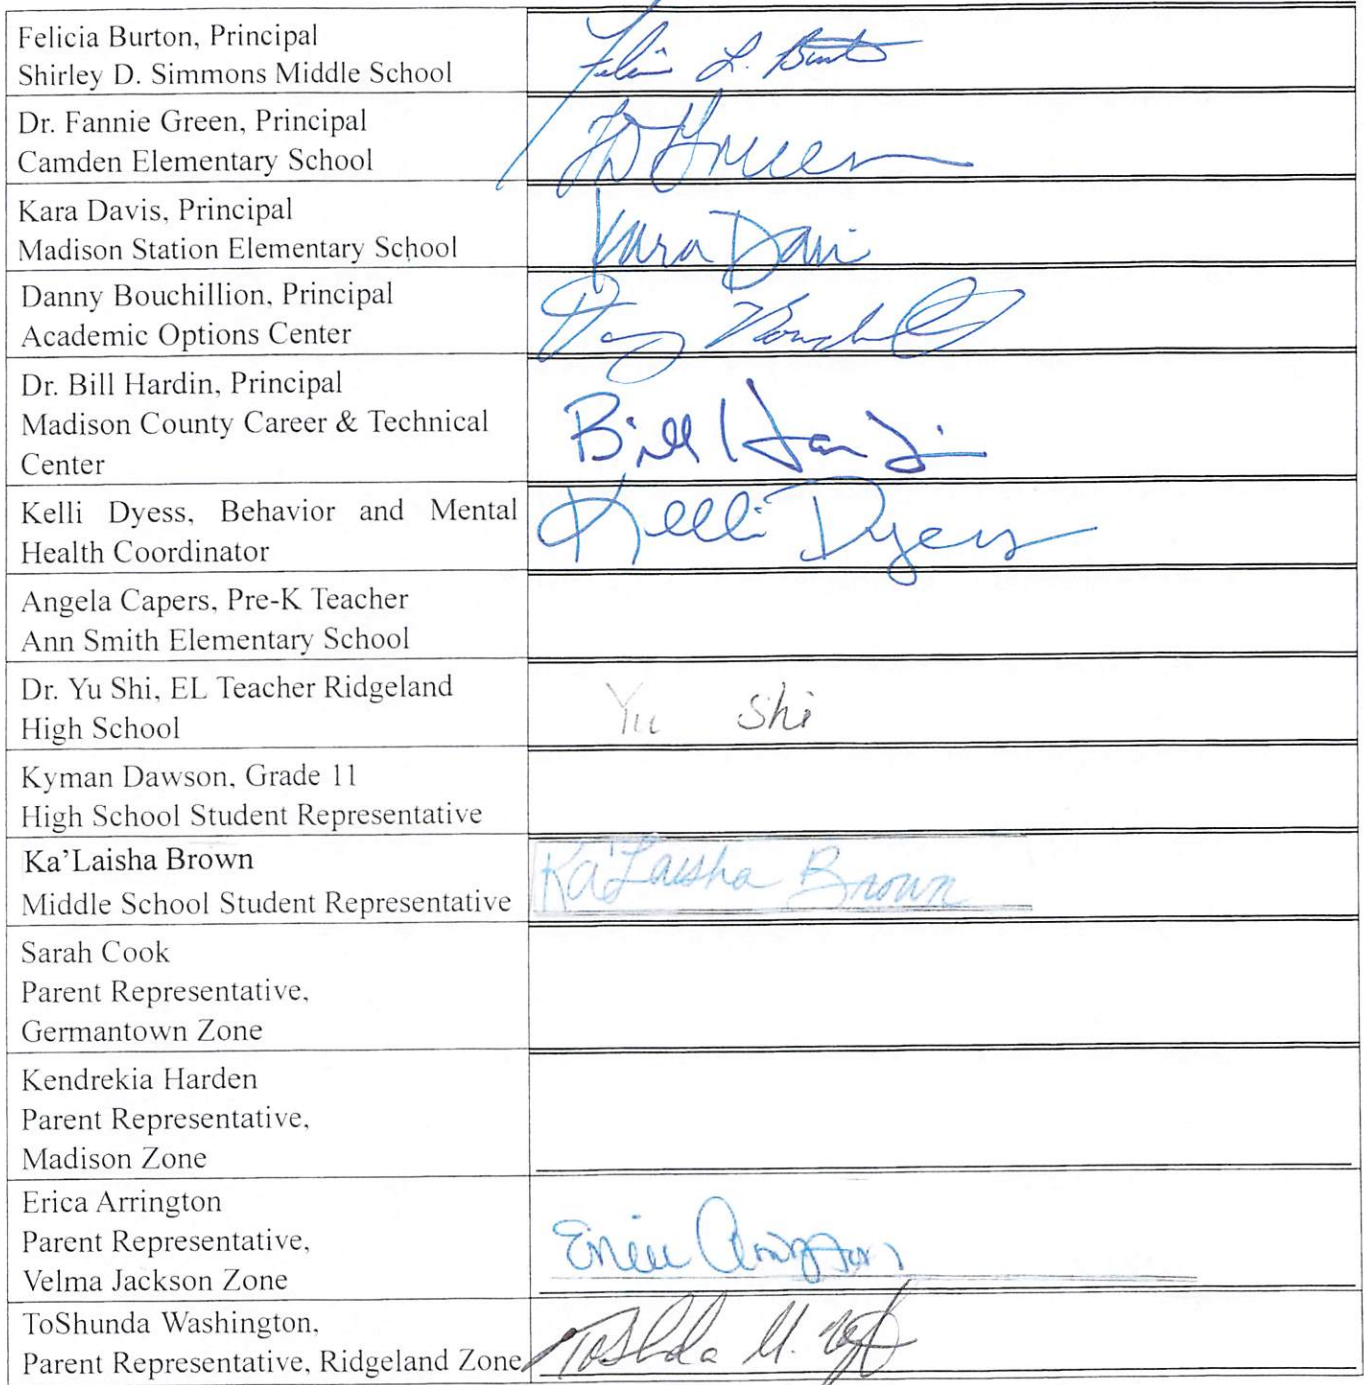 Felicia Burton, Principal
Shirley D. Simmons Middle School
Felicia L. Burton
Dr. Fannie Green, Principal
Camden Elementary School
FD Green
Kara Davis, Principal
Madison Station Elementary School
Kara Davis
Danny Bouchillion, Principal
Academic Options Center
Dr. Bill Hardin, Principal
Madison County Career & Technical
Center
Bill Hardin
Kelli Dyess, Behavior and Mental
Health Coordinator
Kelli Dyess
Angela Capers, Pre-K Teacher
Ann Smith Elementary School
Dr. Yu Shi, EL Teacher Ridgeland
High School
Yu Shi
Kyman Dawson, Grade 11
High School Student Representative
Ka'Laisha Brown
Middle School Student Representative
Ka'Laisha Brown
Sarah Cook
Parent Representative,
Germantown Zone
Kendrekia Harden
Parent Representative,
Madison Zone
Erica Arrington
Parent Representative,
Velma Jackson Zone
Erica Arrington
ToShunda Washington,
Parent Representative, Ridgeland Zone